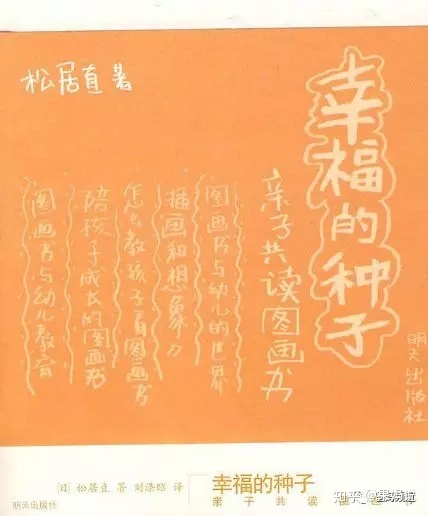 松居直 著
幸福的种子
亲子共读图画书
图画书与幼儿的世界
插画和想象力
怎么教孩子看图画书
陪孩子成长的图画书
图画书与幼儿教育
明天出版社
[日] 松居直 著 刘涤昭 译
幸福的种子
亲子共读图画书
明天出版社
知乎